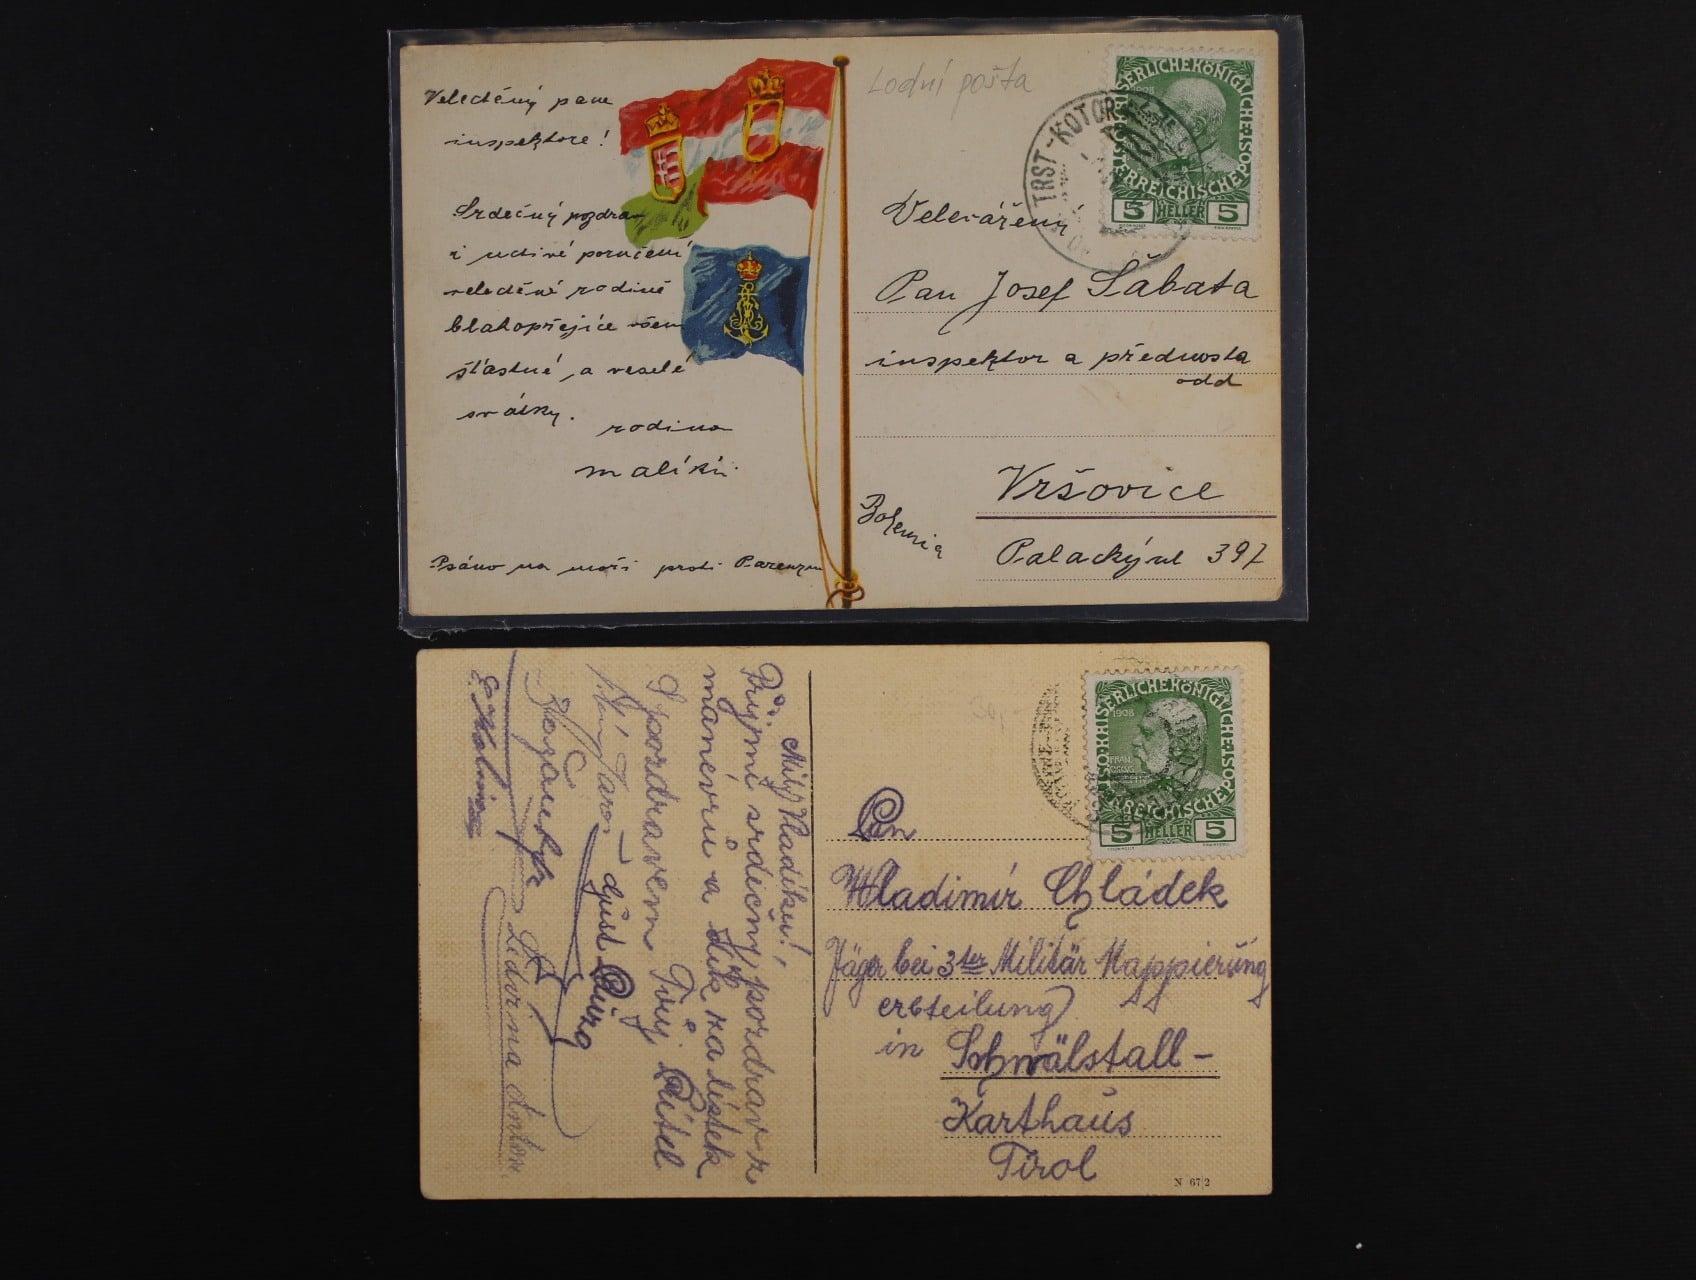 Velectěný pane
inspektore!
Srdečný pozdrav
i uctivé poručení
velectěné rodině
blahopřejíce všem
šťastné a veselé
svátky.
rodina
Malíků.
Psáno na moři proti Parenzu
Lodní pošta
TRST-KOTOR
KAISERLICHE KÖNIGLICHE
ÖSTERREICHISCHE POST
1908
5 HELLER 5
Velevážený
Pan Josef Šabata
inspektor a přednosta
odd
Vršovice
Bohemia
Palacký ul 397
Milý Vladíku!
Přijmi srdečný pozdrav z
manévrů a dík za lístek
S pozdravem Tvůj Přítel
Ledvina Anton
KAISERLICHE KÖNIGLICHE
ÖSTERREICHISCHE POST
1908
5 HELLER 5
Pan
Wladimír Chládek
Jäger bei 3ter Militär Mappierúng
in Schnalstall-
Karthaús
Tirol
N 67/2